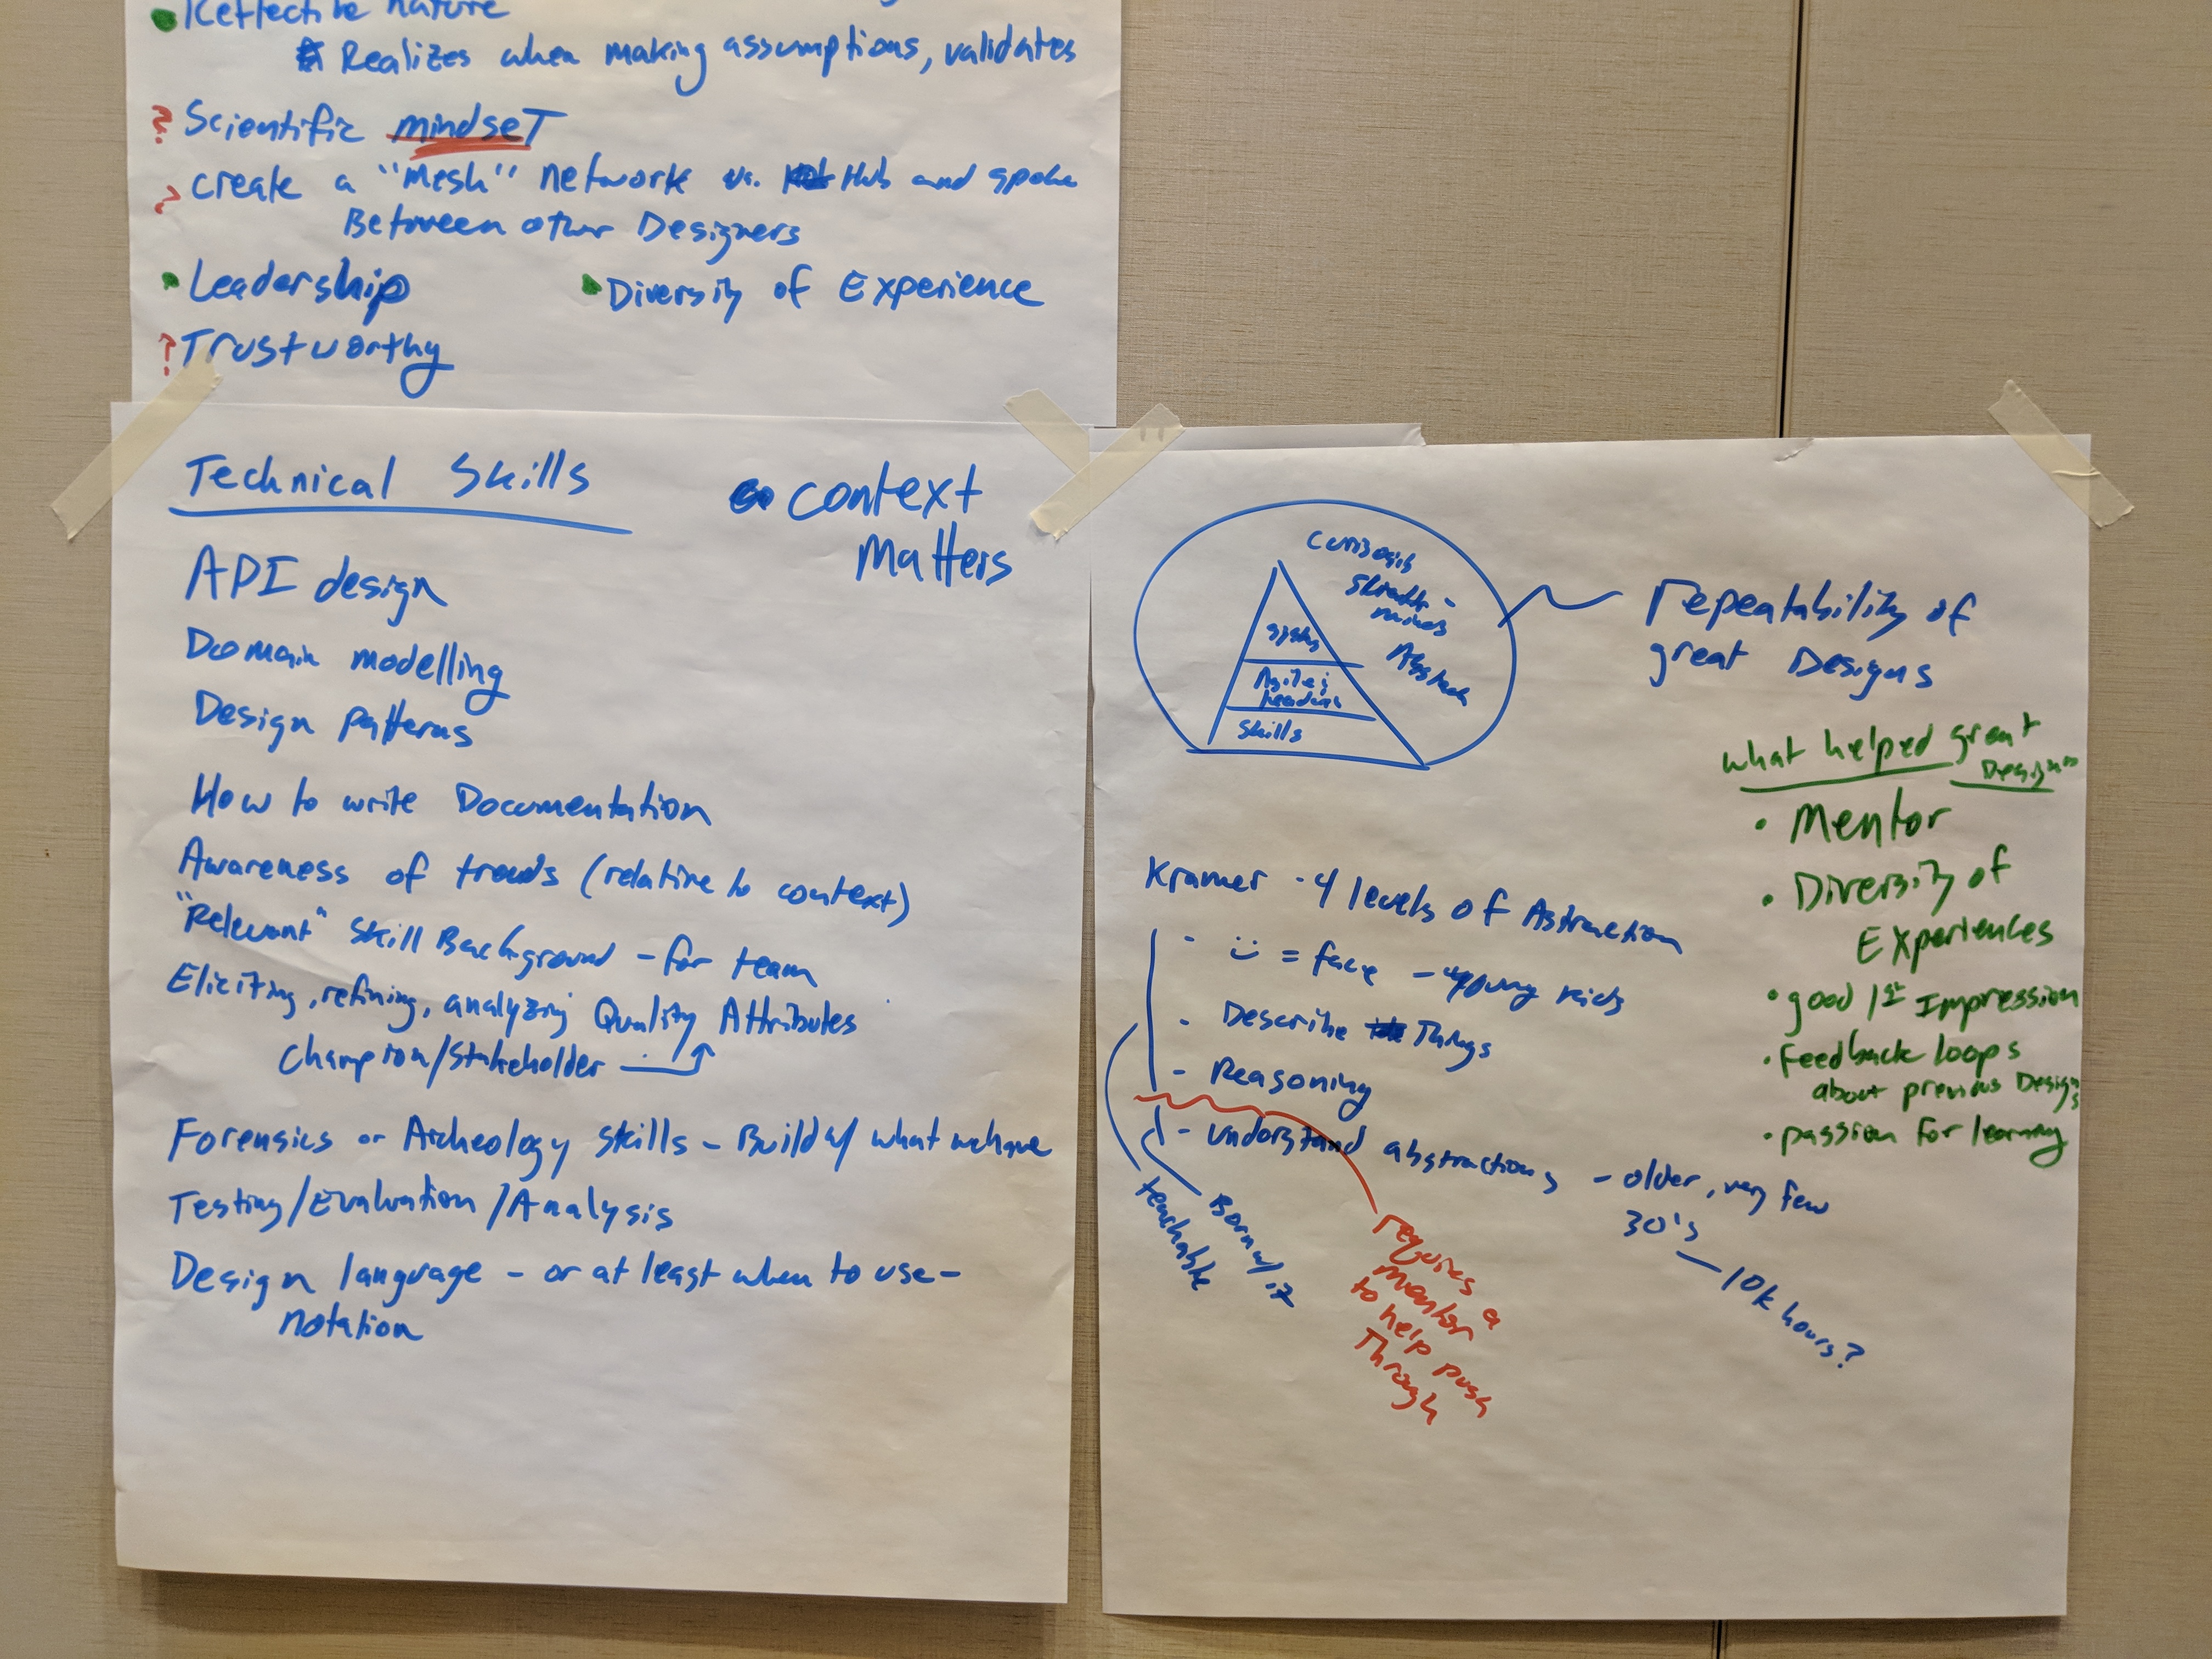 Reflective nature
Realizes when making assumptions, validates
? Scientific mindset
? create a "mesh" network vs. Hub and spoke
Between other Designers
• Leadership
• Diversity of Experience
? Trustworthy
Technical Skills
Context
Matters
API design
Domain modelling
Design patterns
How to write Documentation
Awareness of trends (relative to context)
"Relevant" skill Background - for team
Eliciting, refining, analyzing Quality Attributes
Champion/Stakeholder
Forensics or Archeology skills - Build w/ what we have
Testing/Evaluation/Analysis
Design language - or at least when to use -
notation
Abstract
skills
repeatability of
great Designs
what helped great
• Mentor
• Diversity of
Experiences
• good 1st Impression
• Feedback loops
about previous Designs
• passion for learning
Kramer - 4 levels of Abstraction
- = face - young kids
- Describe Things
- Reasoning
- understand abstractions - older, very few
30's
10k hours?
teachable
Born w/ it
requires a
mentor
to help push
Through